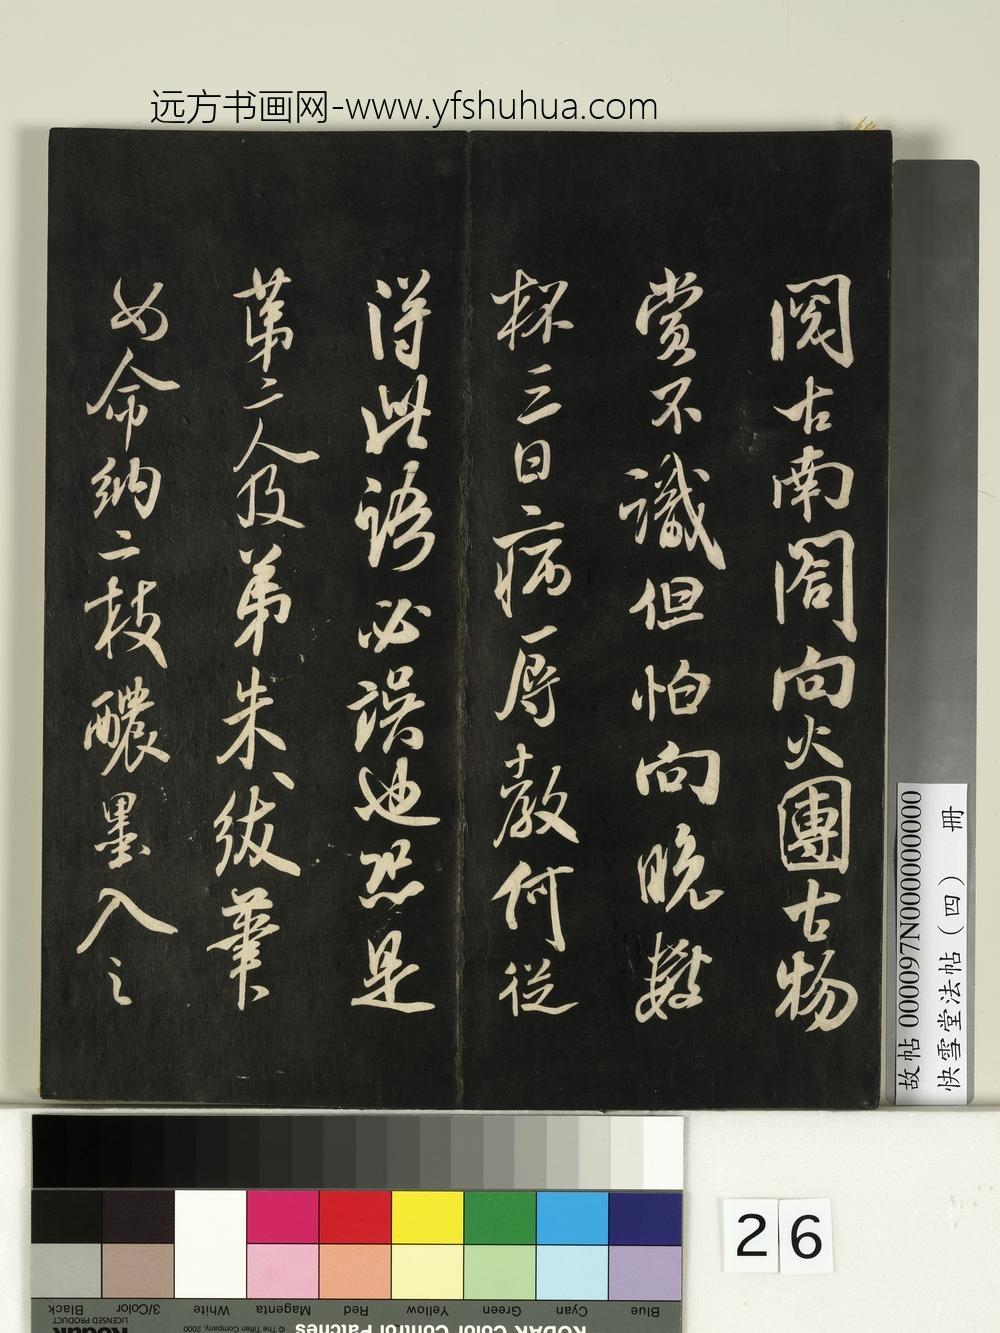 远方书画网-www.yfshuhua.com
阅古南阁向火團古物
赏不識但怕向晚數
杯三日病辱教何從
得此語必誤也恐是
苐二人及弟朱绂筆
如命納二枝醲墨入之
故帖 000097N000000000
快雪堂法帖（四） 冊
26
Blue Cyan Green Yellow Red Magenta White 3/Color Black
KODAK Color Control Patches
© The Tiffen Company, 2000
Kodak
LICENSED PRODUCT